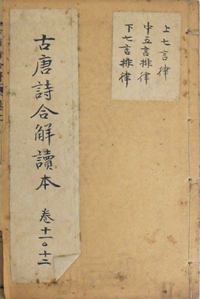 上七言律
中五言排律
下七言排律
古唐詩合解讀本 卷十一〇十二